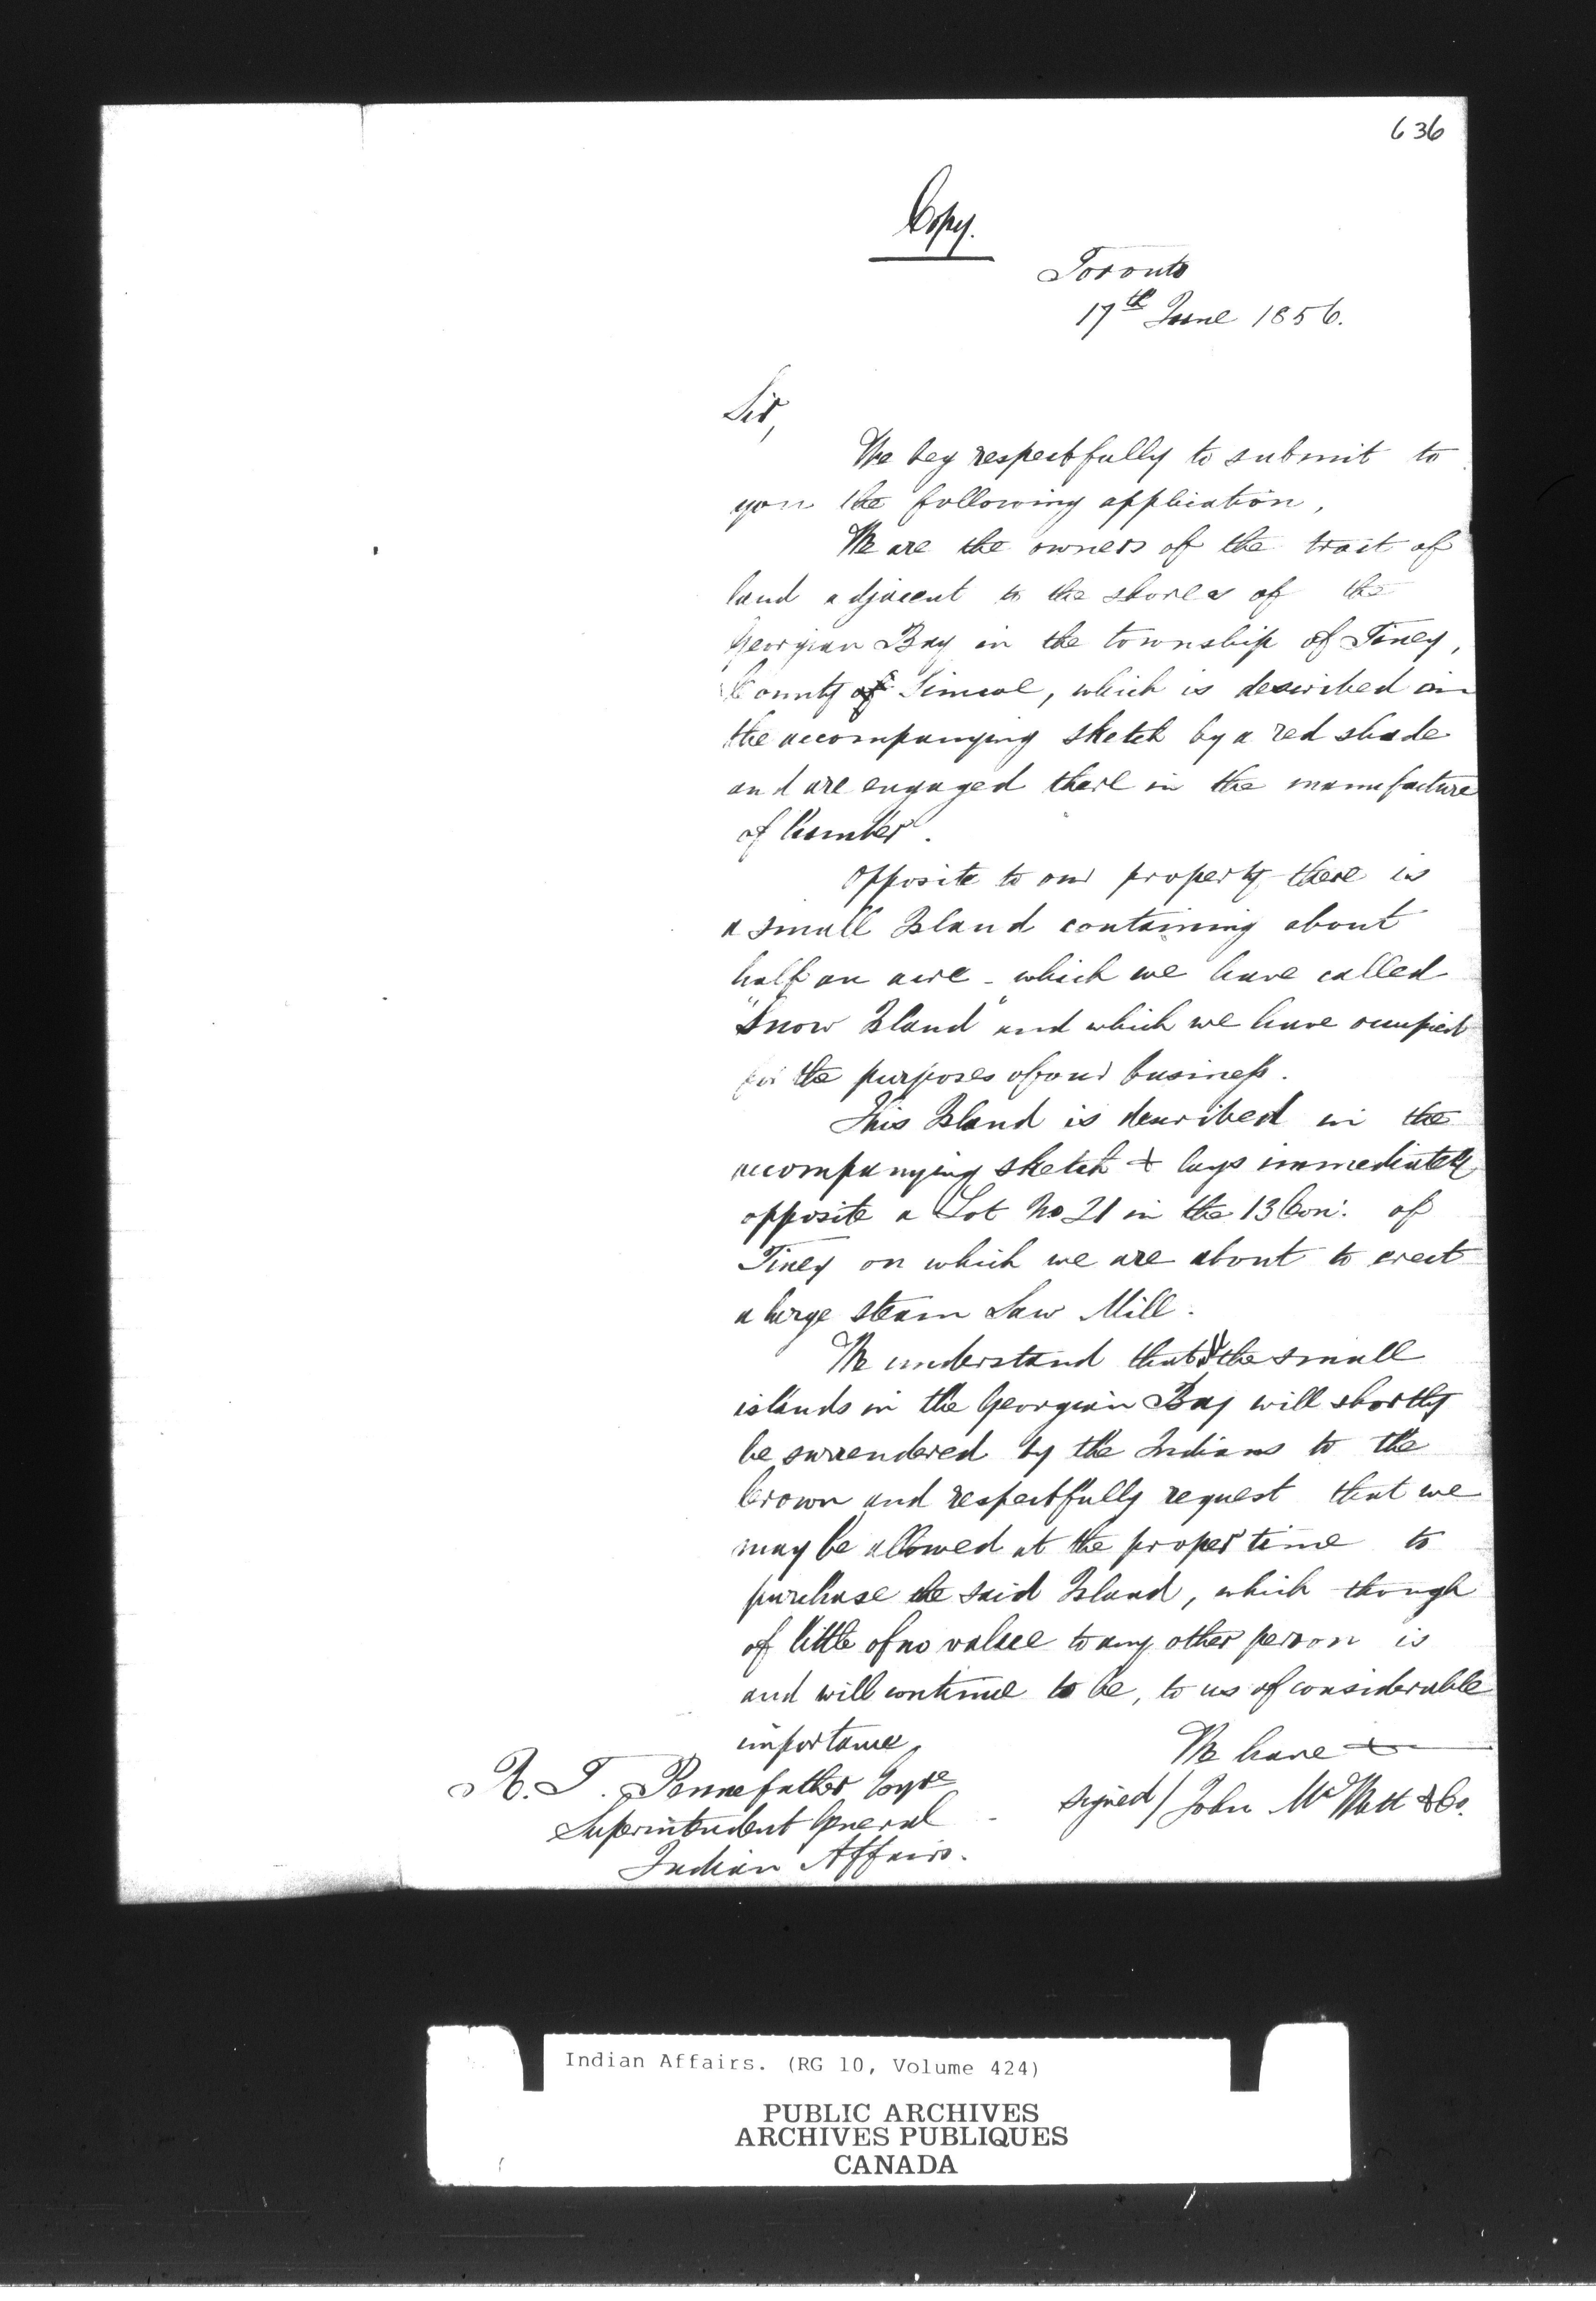 636
Copy.
Toronto
17th June 1856.
Sir,
We beg respectfully to submit to
you the following application,
We are the owners of the tract of
land adjacent to the shores of the
Georgian Bay in the township of Tiney,
County of Simcoe, which is described in
the accompanying sketch by a red shade
and are engaged there in the manufacture
of lumber.
Opposite to our property there is
a small Island containing about
half an acre - which we have called
"Snow Island" and which we have occupied
for the purposes of our business.
This Island is described in the
accompanying sketch & lays immediately
opposite a Lot No 21 in the 13 Con: of
Tiney on which we are about to erect
a large steam Saw Mill.
We understand that the small
islands in the Georgian Bay will shortly
be surrendered by the Indians to the
Crown and respectfully request that we
may be allowed at the proper time to
purchase the said Island, which though
of little of no value to any other person is
and will continue to be, to us of considerable
importance,
We have &
R. T. Pennefather Esqre
signed / John & Co.
Superintendent General
Indian Affairs.
Indian Affairs. (RG 10, Volume 424)
PUBLIC ARCHIVES
ARCHIVES PUBLIQUES
CANADA